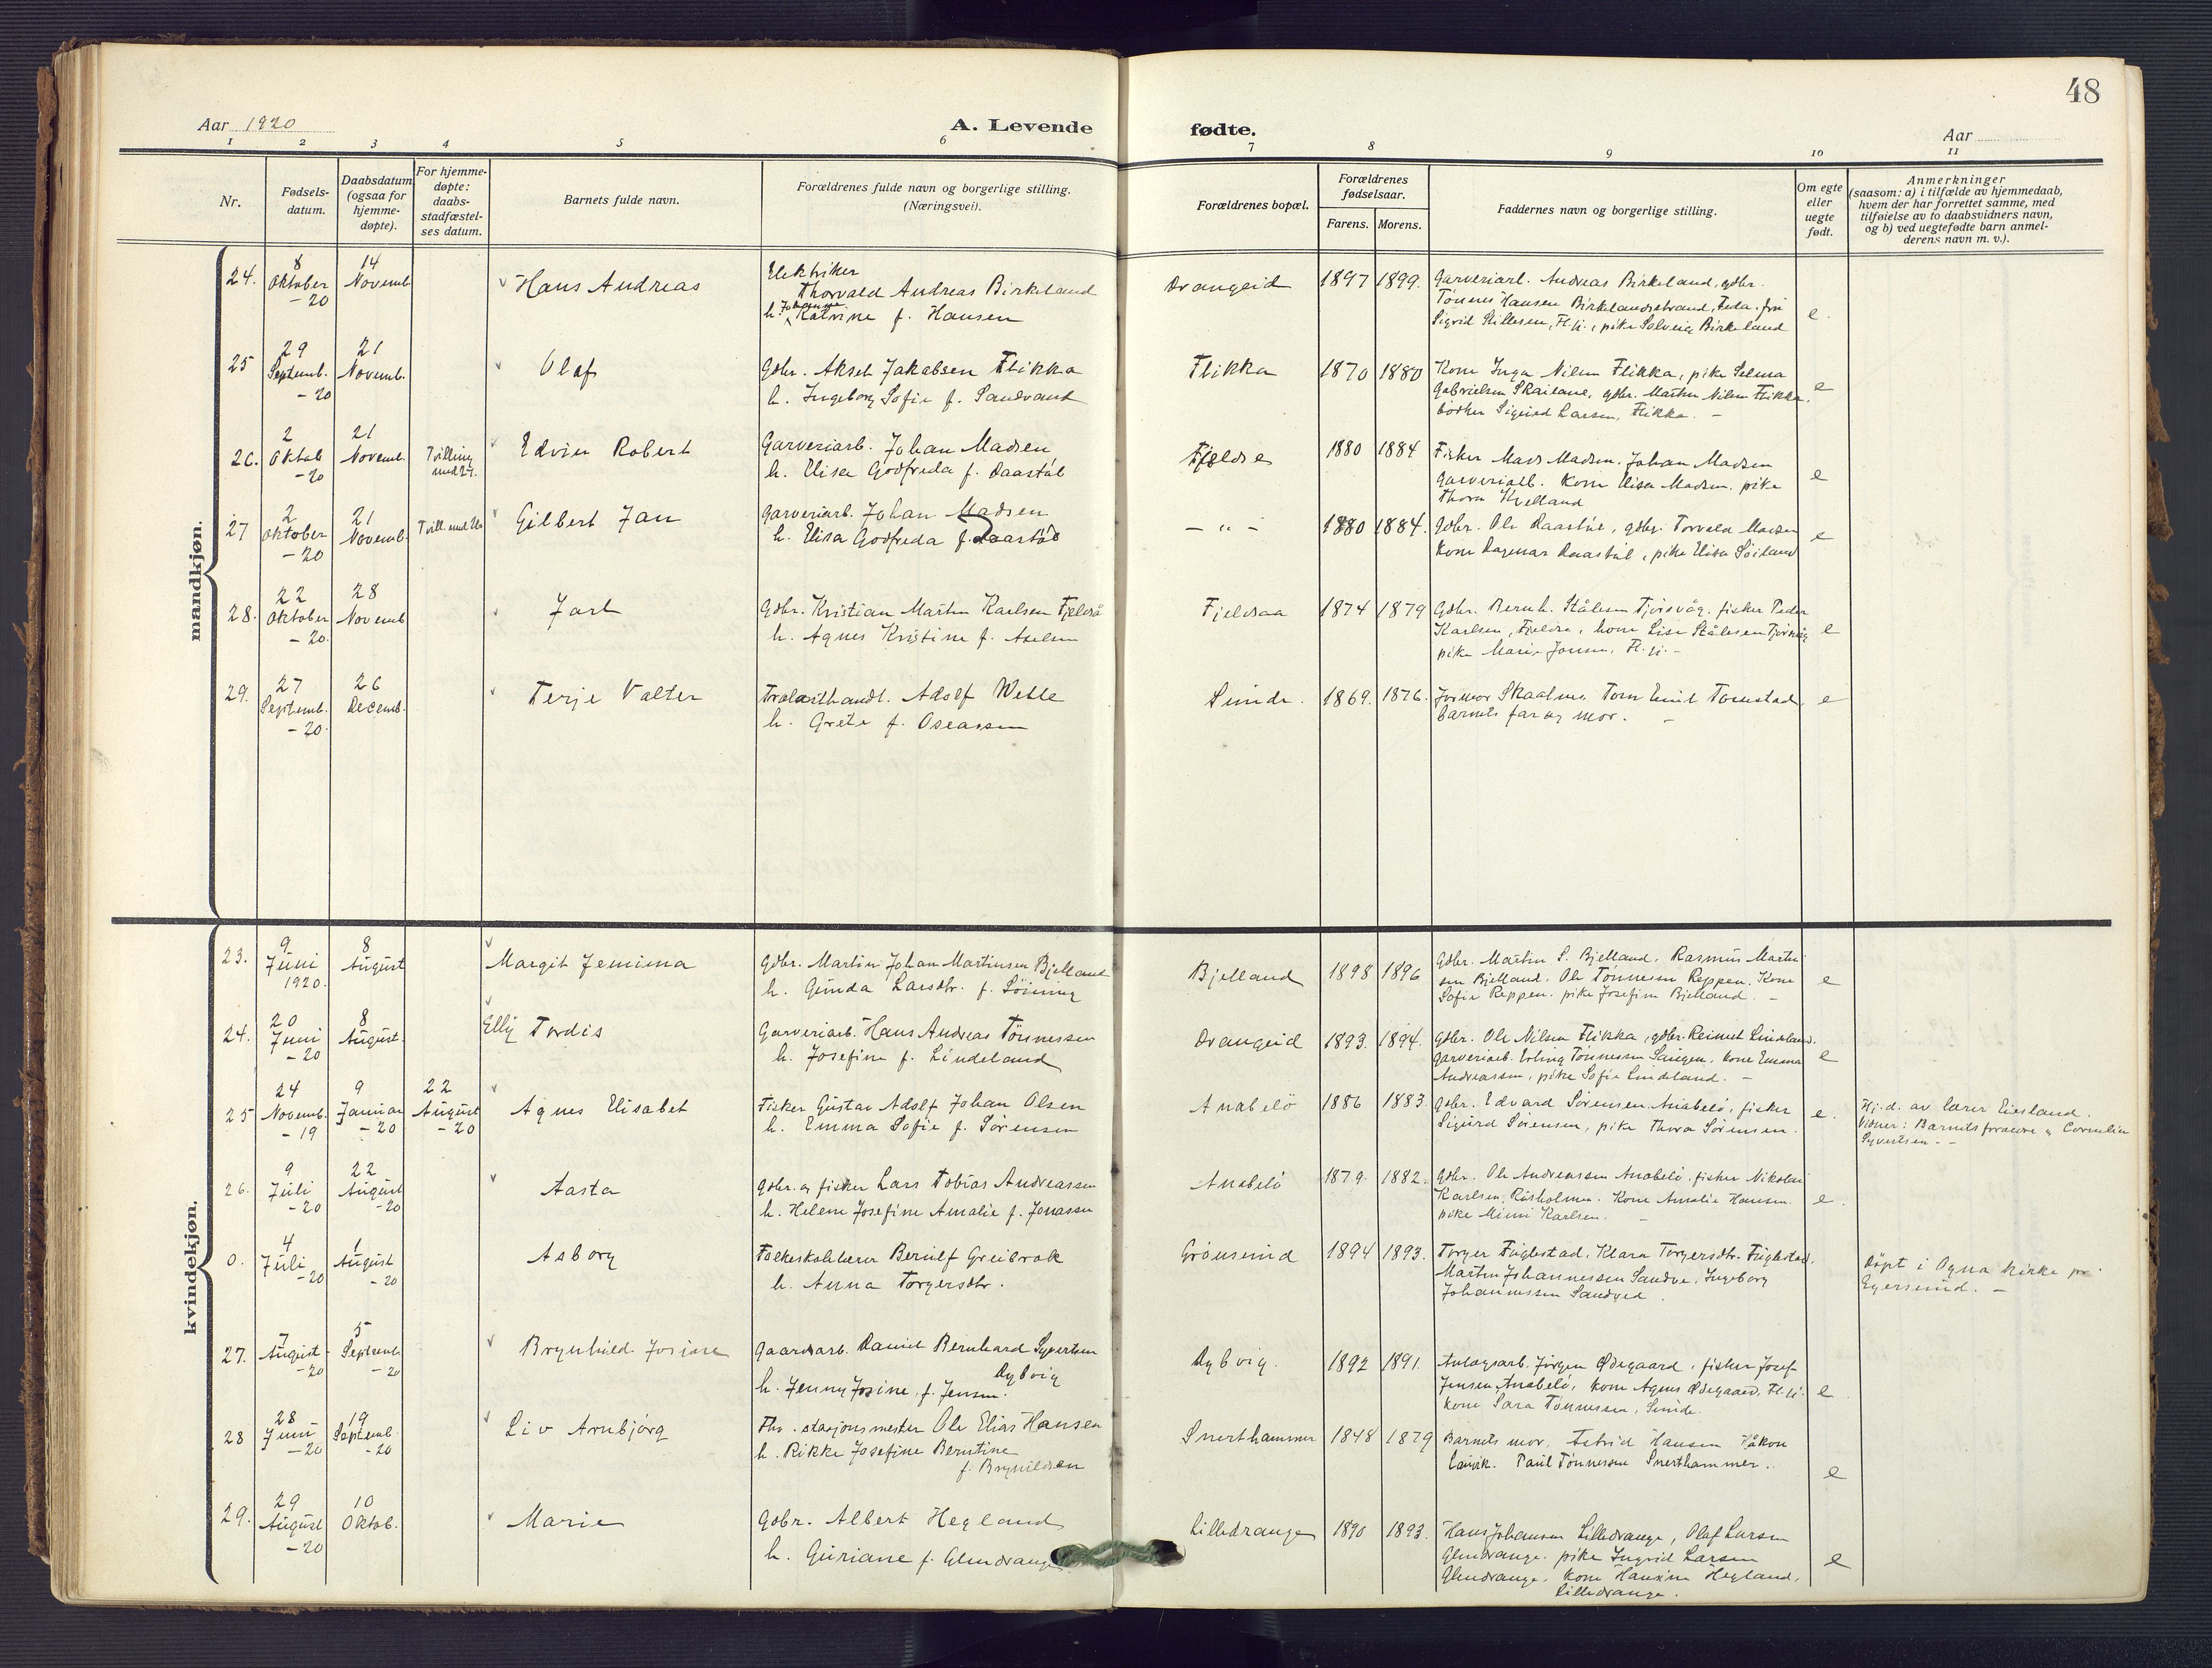 48
Aar 1920
A. Levende
fødte.
Aar
1 2 3 4 5 6 7 8 9 10 11
Nr.
Fødsels-
datum.
Daabsdatum
(ogsaa for
hjemme-
døpte).
For hjemme-
døpte:
daabs-
stadfæstel-
ses datum.
Barnets fulde navn.
Forældrenes fulde navn og borgerlige stilling.
(Næringsvei).
Forældrenes bopæl.
Forældrenes
fødselsaar.
Farens. Morens.
Faddernes navn og borgerlige stilling.
Om egte
eller
uegte
født.
Anmerkninger
(saasom: a) i tilfælde av hjemmedaab,
hvem der har forrettet samme, med
tilføielse av to daabsvidners navn,
og b) ved uegtefødte barn anmel-
derens navn m. v.).
mandkjøn.
24.
8
Oktober
-20
14
Novemb.
Hans Andreas
Elektriker
Thorvald Andreas Birkeland
h. Johanne Katrine f. Hansen
Drangeid
1897 1899.
Garveriarb. Andreas Birkeland, gdbr.
Tønnes Hansen Birkelandsstrand, Feda, frii
Sigrid Stillesen, Fl.fj., pike Solveig Birkeland
e.
25
29
Septemb.
-20
21
Novemb.
Olaf
Gdbr. Aksel Jakobsen Flikka
h. Ingeborg Sofie f. Sandvand
Flikka
1870 1880
Kone Inga Nilsen Flikka, pike Selma
Gabrielsen Skailand, gdbr. Martin Nilsen Flikka,
bødker Sigurd Larsen, Flikka. -
e
26.
2
Oktob
-20
21
Novemb.
Tvilling
med 27.
Edvin Robert
Garveriarb. Johan Madsen
h. Elisa Godfreda f. Daastøl
Fjeldse
1880 1884
Fisker Mads Madsen. Johan Madsen
Garveriarb. Kone Elisa Madsen. pike
Thora Kvelland
e
27
2
Oktober
-20
21
Novemb.
Tvill. med
Gilbert Jan
Garveriarb. Johan Madsen
h. Elisa Godfreda f. Daastøl
- " -
1880 1884.
Gdbr. Ole Daastøl, gdbr. Torvald Madsen
Kone Dagmar Daastøl, pike Elisa Søiland
e
28.
22
Oktober
-20.
28
Novemb
Jarl
Gdbr. Kristian Martin Karlsen Fjeldså
h. Agnes Kristine f. Axelsen
Fjeldsaa
1874 1879
Gdbr. Bernh. Stålesen Tjørsvåg. fisker Peder
Karlsen, Fjeldse, kone Lise Stålesen Tjørsvåg
pike Marie Jensen, Fl.fj. -
e
29.
27
Septemb.
-20.
26
Decemb.
Terje Valter
Trælasthandl. Adolf Wetle
h. Grete f. Oseassen
Sunde.
1869. 1876.
Tom Emil Tomstad,
barnets far og mor. -
e
kvindekjøn.
23.
9
Juni
1920.
8
August
Margit Jemima
Gdbr. Martin Johan Martinsen Bjelland
h. Gunda Larsdtr. f.
Bjelland
1898 1896
Gdbr. Martin S. Bjelland. Rasmus Martin
sen Bjelland. Ole Tønnesen Reppen. Kone
Sofie Reppen. pike Josefine Bjelland. -
e
24.
20
Juni
-20
8
August.
Elly Tordis
Garveriarb. Hans Andreas Tønnessen
h. Josefine f. Lindeland
Drangeid
1893. 1894.
Gdbr. Ole Nilsen Flikka, gdbr. Reinert Lindeland.
Garveriarb. Erling Tønnessen Saugen. kone Emma
Andreassen, pike Sofie Lindeland. -
e
25
24
Novemb.
-19
9
Januar
-20
22
August
-20
Agnes Elisabet
Fisker Gustav Adolf Johan Olsen
h. Emma Sofie f. Sørensen
Anabelø
1886 1883.
Gdbr. Edvard Sørensen Anabelø, fisker
Sigurd Sørensen, pike Thora Sørensen.
e.
Hj.d. av lærer Eiesland.
Vidner: Barnets forældre og Cornelia
Syvertsen - -
26.
9
Juli
-20
22
August
-20
Aasta
Gdbr. og fisker Lars Tobias Andreassen
h. Helene Josefine Amalie f. Jonassen
Anabelø
1879. 1882.
Gdbr. Ole Andreassen Anabelø. fisker Nikolai
Karlsen, Risholmen. Kone Amalie Hansen
pike Mimi Karlsen. -
e.
0.
4
Juli
-20
1
August
-20
Asborg
Folkeskolelærer Berulf Greibrok
h. Anna Torgersdtr.
Grønsund
1894 1893.
Torger Fuglestad, Klara Torgersdtr. Fuglestad.
Martin Johannessen Sandve, Ingeborg
Johannessen Sandved.
Døpt i Ogna kirke pr.
Egersund. -
27.
7
August
-20
5
Septemb
-20
Brynhild Josine
Gaardsarb. Daniel Bernhard Syvertsen
Dybvig
h. Jenny Josine, f. Jensen.
Dybvig.
1892 1891.
Anlægsarb. Jørgen Ødegaard, fisker Josef
Jensen Anabelø, kone Agnes Ødegaard, Fl.fj.
kone Sara Tønnessen, Sunde.
e
28
28
Juni
-20
19
Septemb.
-20
Liv Arnbjørg
Fhv. stasjonsmester Ole Elias Hansen
h. Rikke Josefine Berntine
f. Brynildsen
Snerthammer
1848 1879
Barnets mor, Astrid Hansen Håkon
Paul Tønnessen Snerthammer.
e
29.
29
August
-20
10
Oktob.
Marie
Gdbr. Albert Hegland
h. Guriane f. Glendrange
Lilledrange
1890 1893.
Hans Johansen Lilledrange, Olaf Larsen
Glendrange. pike Ingrid Larsen
Glendrange. kone Hansine Hegland,
Lilledrange.
e